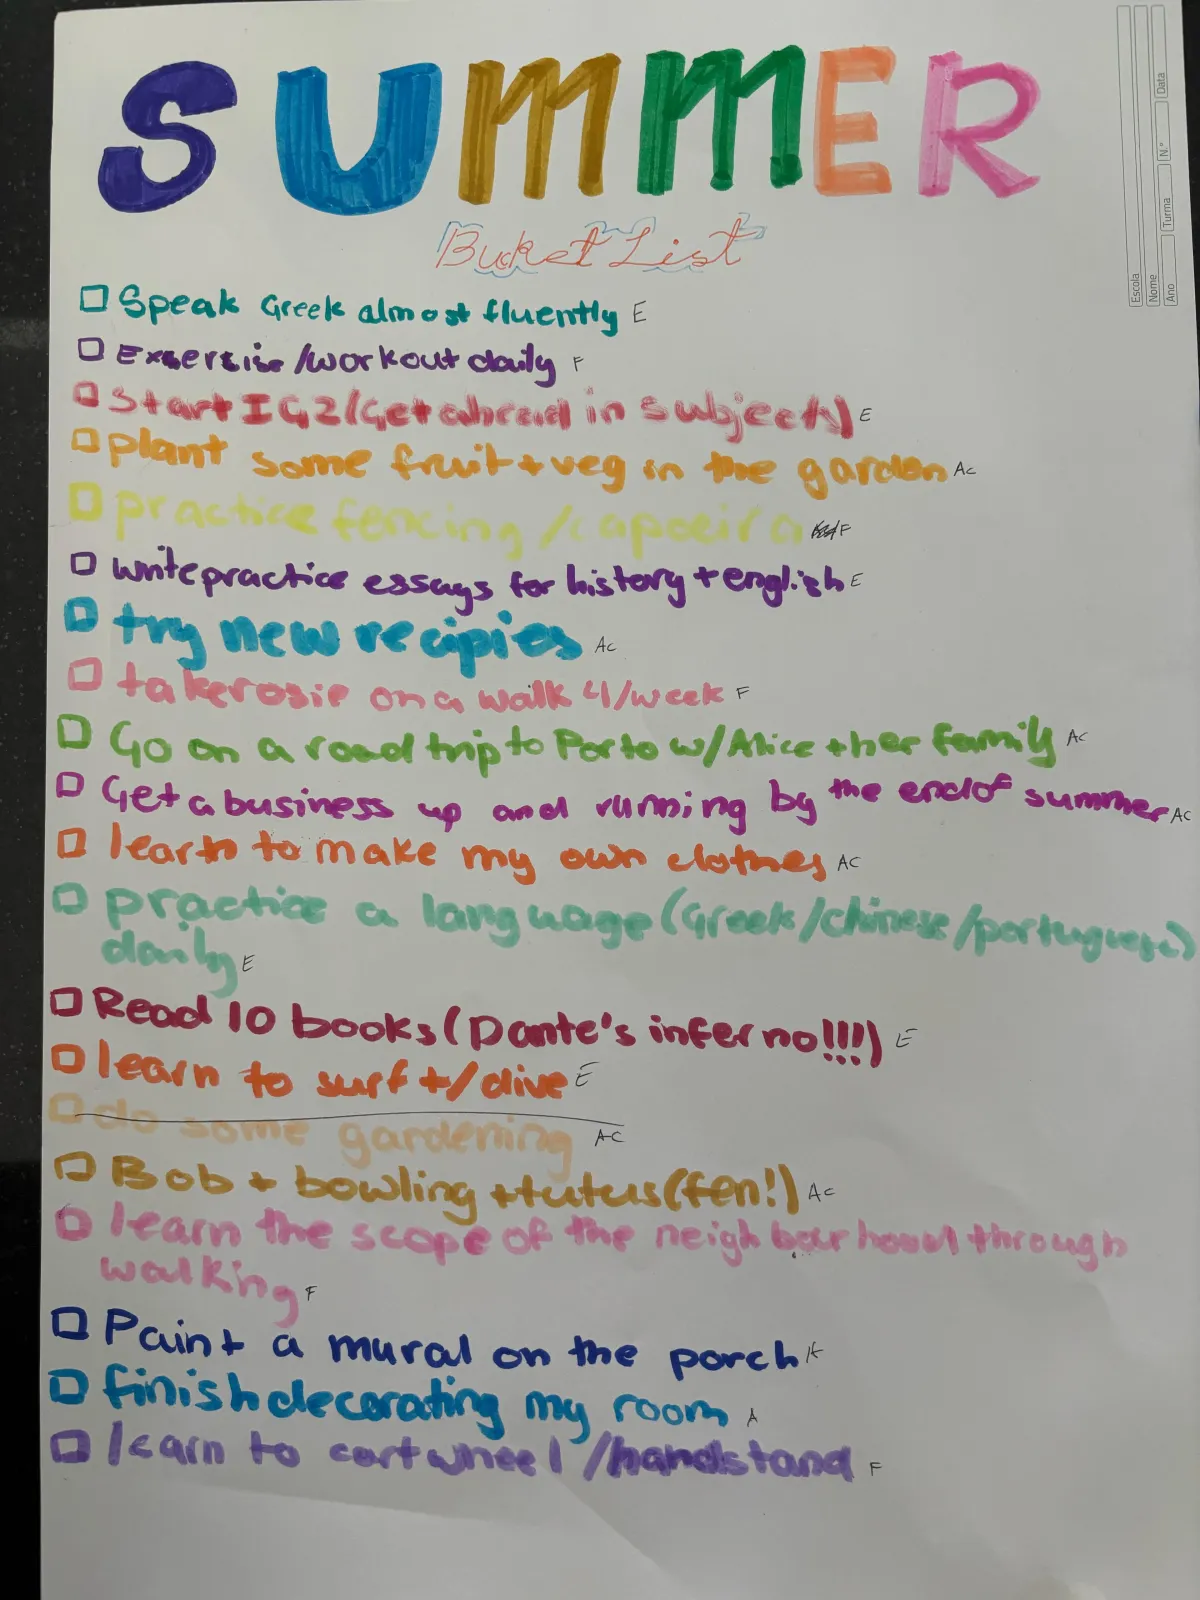 SUMMER
Bucket List
Escola
Nome
Ano Turma N.º Data
□ Speak Greek almost fluently E
□ Exsersise/workout daily F
□ Start IG2/Get ahead in subjects) E
□ plant some fruit + veg in the garden AC
□ practice fencing/capoeira F
□ write practice essays for history + english E
□ try new recipies AC
□ take rosie on a walk 4/week F
□ Go on a road trip to Porto w/Alice + her family AC
□ Get a business up and running by the end of summer AC
□ learn to make my own clothes AC
□ practice a language (Greek/chinese/portuguese)
daily E
□ Read 10 books (Dante's inferno!!!) E
□ learn to surf +/dive E
□ do some gardening AC
□ Bob + bowling + tutus (fen!) AC
□ learn the scope of the neighbourhood through
walking F
□ Paint a mural on the porch
□ finish decorating my room A
□ learn to cartwheel/handstand F